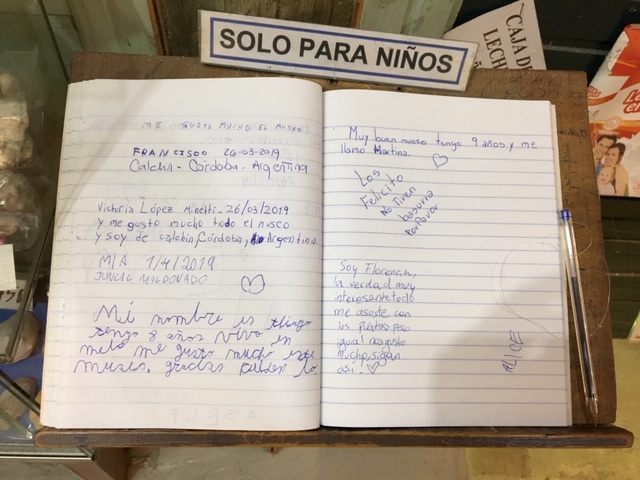 SOLO PARA NIÑOS
CAJA DE
LECH
ME GUSTO MUCHO EL MUSEO
FRANCISCO 26-03-2019
Calchin - Córdoba - Argentina
Victoria López Minetti - 26/03/2019
y me gusto mucho todo el museo
y soy de calchin, Córdoba, Argentina
MIA 1/4/2019
JUNCAL MALDONADO
Mi nombre es
tengo 8 años vivo en
melo me gusto mucho este
museo. gracias
Muy buen museo tengo 9 años y me
llamo Martina.
Los
Felicito
No Tiren
basurra
Por Favor
Soy Florencia,
la verdad muy
interesante todo
me asuste con
los piratas pero
igual me gusto
mucho, sigan
así!
ALICE